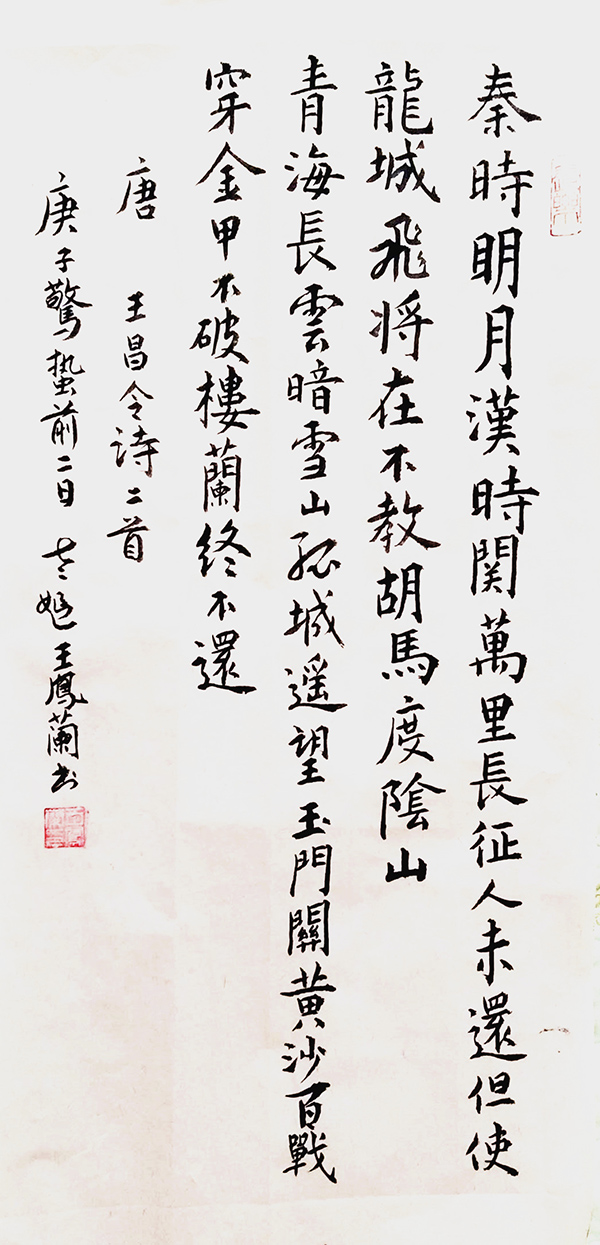 秦時明月漢時関萬里長征人未還但使
龍城飛将在不教胡馬度陰山
青海長雲暗雪山孤城遥望玉門關黄沙百戰
穿金甲不破樓蘭終不還
唐 王昌令诗二首
庚子驚蛰前二日 老嫗王鳳蘭书